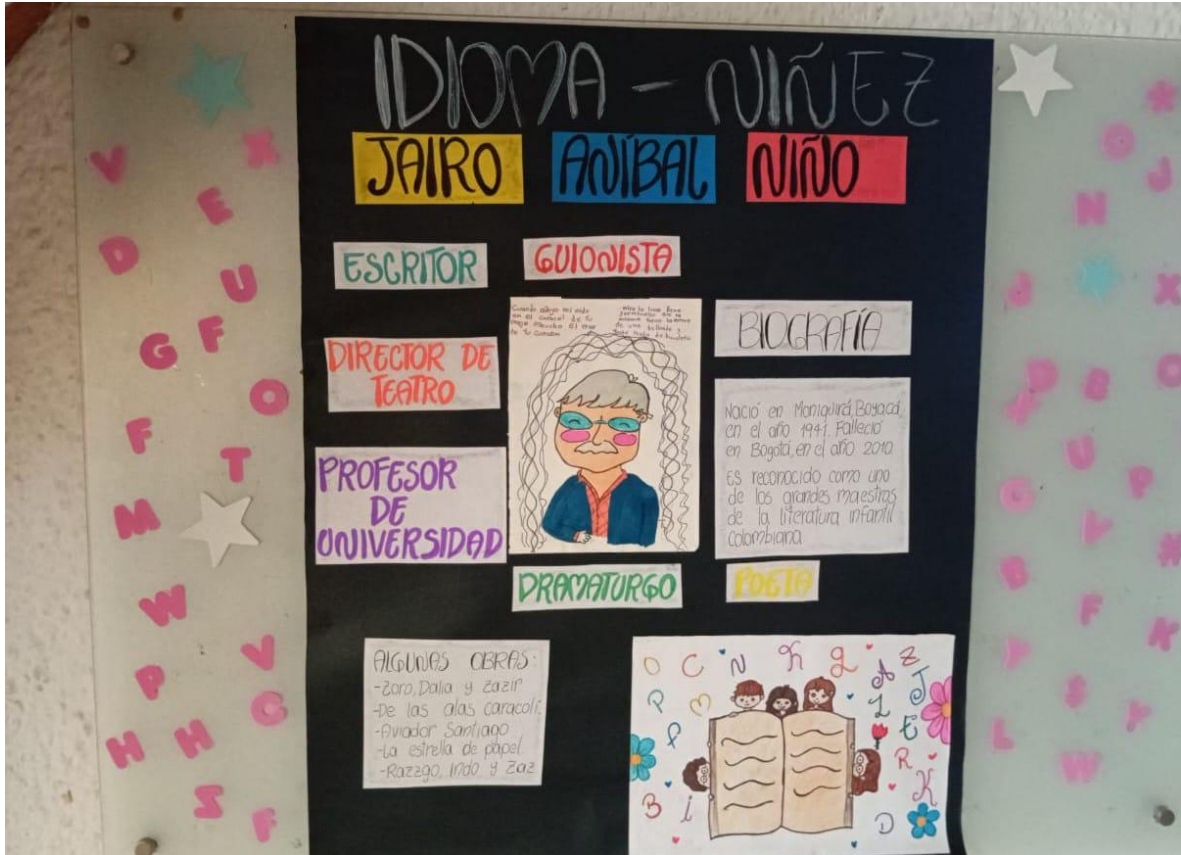 IDIOMA - NIÑEZ
JAIRO ANÍBAL NIÑO
ESCRITOR
GUIONISTA
DIRECTOR DE
TEATRO
PROFESOR
DE
UNIVERSIDAD
Cuando
en el caracol de tu
el mar
de tu corazón
de una ballena y
BIOGRAFÍA
Nació en Moniquirá, Boyacá,
en el año 1941. Falleció
en Bogotá, en el año 2010
Es reconocido como uno
de los grandes maestros
de la literatura infantil
colombiana
DRAMATURGO
POETA
ALGUNAS OBRAS:
-Zoro, Dalia y Zazir
-De las alas caracolí.
-Aviador Santiago
-La estrella de papel
-Razzgo, Indo y Zaz